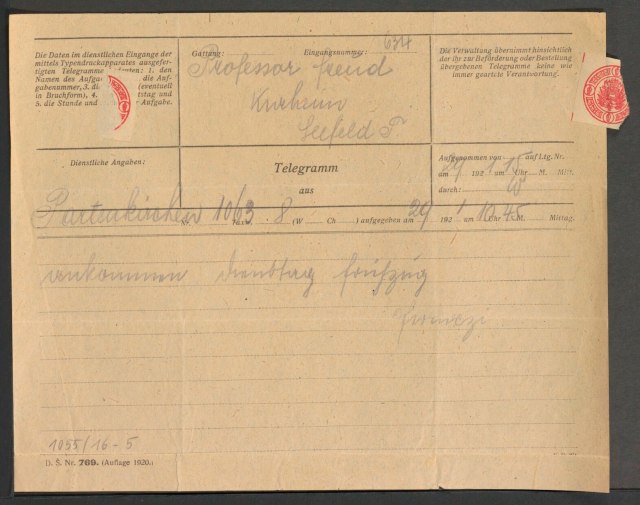 634
Die Daten im dienstlichen Eingange der
mittels Typendruckapparates ausgefer-
tigten Telegramme 1. den
Namen des Aufga die Auf-
gabenummer, 3. di (eventuell
in Bruchform), 4. tstag und
5. die Stunde und Aufgabe.
Gattung: Eingangsnummer:
Professor freud
Kurheim
Seefeld T
Die Verwaltung übernimmt hinsichtlich
der ihr zur Beförderung oder Bestellung
übergebenen Telegramme keine wie
immer geartete Verantwortung.
Dienstliche Angaben:
Telegramm
aus
Aufgenommen von auf Ltg. Nr.
am 29 192 1 um 15 Uhr M. Mitt.
durch:
Partenkirchen Nr. 1063 Taxw. 8 (W Ch ) aufgegeben am 29 192 1 10 Uhr 45 M. Mittag.
ankommen dienstag frühzug
ferenczi
1055/16-5
D. S. Nr. 769. (Auflage 1920.)